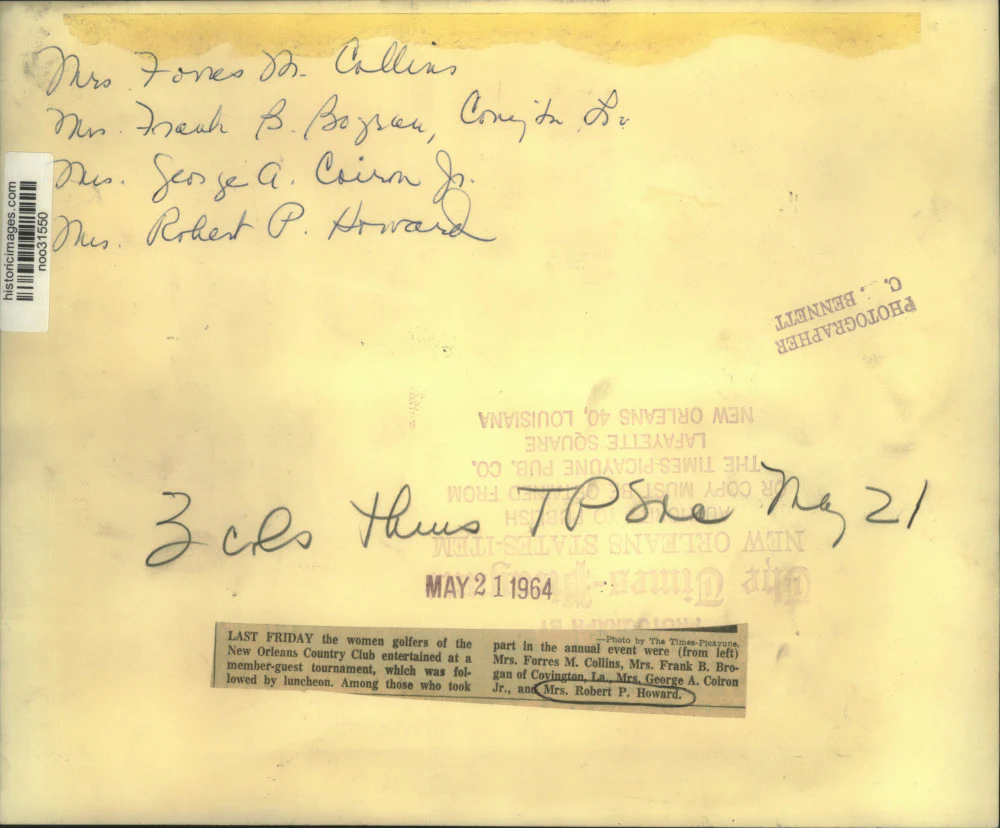 Mrs. Forres M. Collins
Mrs. Frank B. Bogran, Covington La.
Mrs. George A. Coiron Jr.
Mrs. Robert P. Howard
historicimages.com
noo31550
PHOTOGRAPHER
C. . BENNETT
3 cols Thurs TP Soc May 21
MAY 21 1964
PHOTOGRAPH BY
The Times-Picayune
NEW ORLEANS STATES-ITEM
TO PUBLISH
OR COPY MUST BE OBTAINED FROM
THE TIMES-PICAYUNE PUB. CO.
LAFAYETTE SQUARE
NEW ORLEANS 40, LOUISIANA
LAST FRIDAY the women golfers of the
New Orleans Country Club entertained at a
member-guest tournament, which was fol-
lowed by luncheon. Among those who took
—Photo by The Times-Picayune.
part in the annual event were (from left)
Mrs. Forres M. Collins, Mrs. Frank B. Bro-
gan of Covington, La., Mrs. George A. Coiron
Jr., and Mrs. Robert P. Howard.